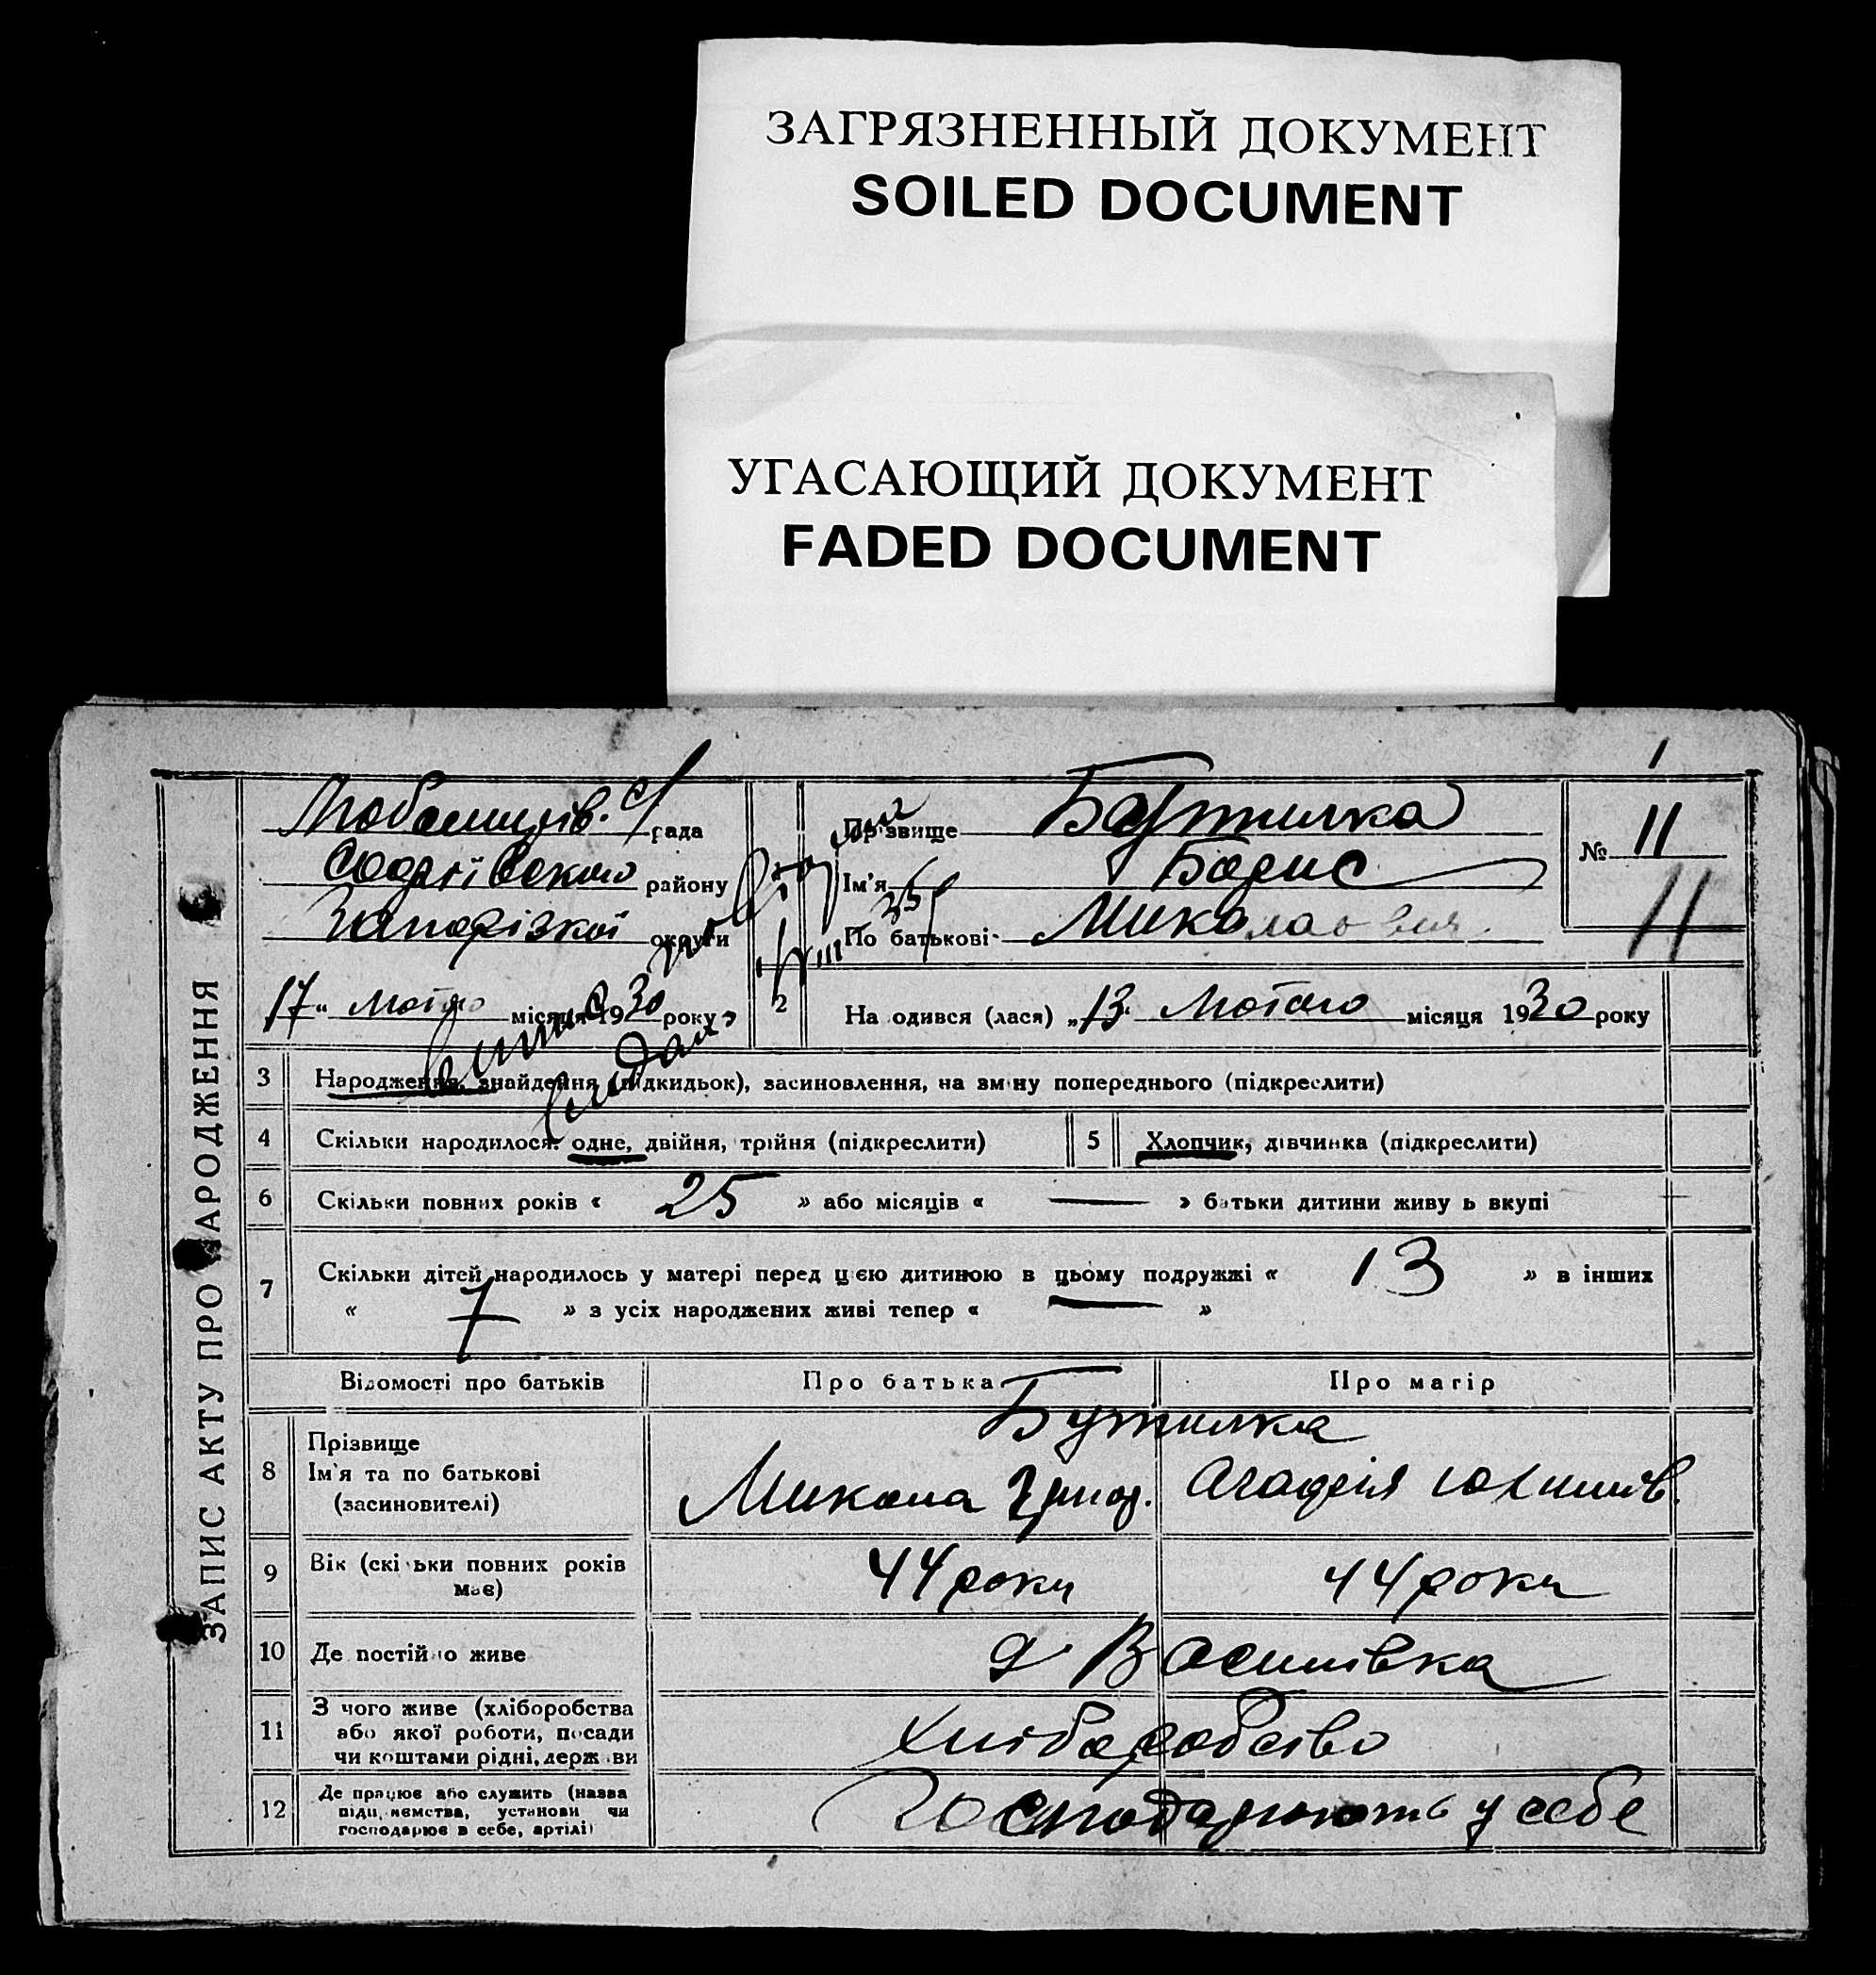 ЗАГРЯЗНЕННЫЙ ДОКУМЕНТ
SOILED DOCUMENT
УГАСАЮЩИЙ ДОКУМЕНТ
FADED DOCUMENT
1
ЗАПИС АКТУ ПРО НАРОДЖЕННЯ
с/рада
району
Запорізкої округи
17 " Лютого місяця 1930 року
Прізвище Бутилка
Ім'я Борис
По батькові Миколаович
№ 11
11
2
На одився (лася) „13" Лютого місяця 1930 року
3 Народження, знайдення (підкидьок), засиновлення, на зміну попереднього (підкреслити)
4 Скільки народилося: одне, двійня, трійня (підкреслити)
5 Хлопчик, дівчинка (підкреслити)
6 Скільки повних років « 25 » або місяців « — » батьки дитини живу ь вкупі
7 Скільки дітей народилось у матері перед цією дитиною в цьому подружжі « 13 » в інших
« 7 » з усіх народжених живі тепер « — »
Відомості про батьків Про батька Про матір
8 Прізвище
Ім'я та по батькові
(засиновителі)
Бутилка
Микола Григор. Агафія Юхимів.
9 Вік (скі ьки повних років
має)
44 роки 44 роки
10 Де постійно живе
Василівка
11 З чого живе (хліборобства
або якої роботи, посади
чи коштами рідні, держ ви
Хліборобство
12 Де працює або служить (назва
підп, иємства, установи чи
господарює в себе, артілі)
Господарюють у себе